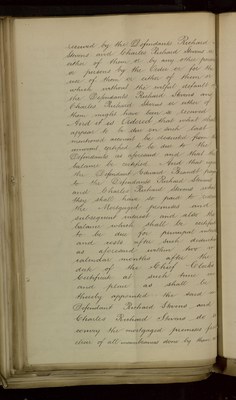 received by the Defendants Richard
Stevens and Charles Richard Stevens or
either of them or by any other person
or persons by the order or for the
use of them or either of them or
which without the wilful default of
the Defendants Richard Stevens and
Charles Richard Stevens or either of
them might have been so received
And it is Ordered that what shall
appear to be due on such last
mentioned account be deducted from
amount certified to be due to the
Defendants as aforesaid and that the
balance be certified And that upon
the Defendant Edward
to the Defendants Richard Stevens
and Charles Richard Stevens what
they shall have so paid to
the Mortgaged premises and
subsequent interest and also the
balance which shall be certified
to be due for principal interest
and costs after such deduction
as aforesaid within two
calendar months after the
date of the Chief Clerks
Certificate at such time
and place as shall be
thereby appointed the said
Defendants Richard Stevens and
Charles Richard Stevens do
convey the mortgaged premises free
clear of all incumbrances done by them